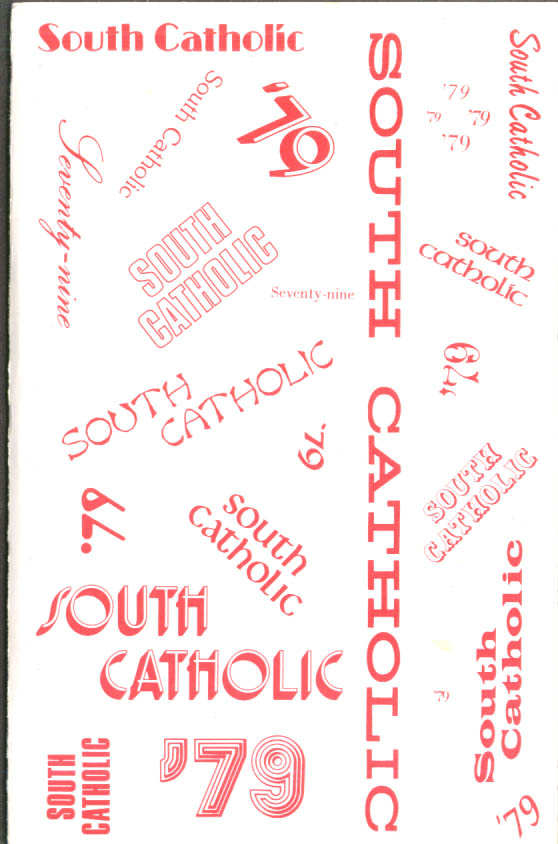 South Catholic
South Catholic
'79
Seventy-nine
SOUTH
CATHOLIC
Seventy-nine
SOUTH
CATHOLIC
'79
'79
south
catholic
SOUTH
CATHOLIC
SOUTH
CATHOLIC
'79
SOUTH CATHOLIC
South Catholic
'79
'79
'79
'79
south
catholic
'79
SOUTH
CATHOLIC
South
Catholic
'79
'79